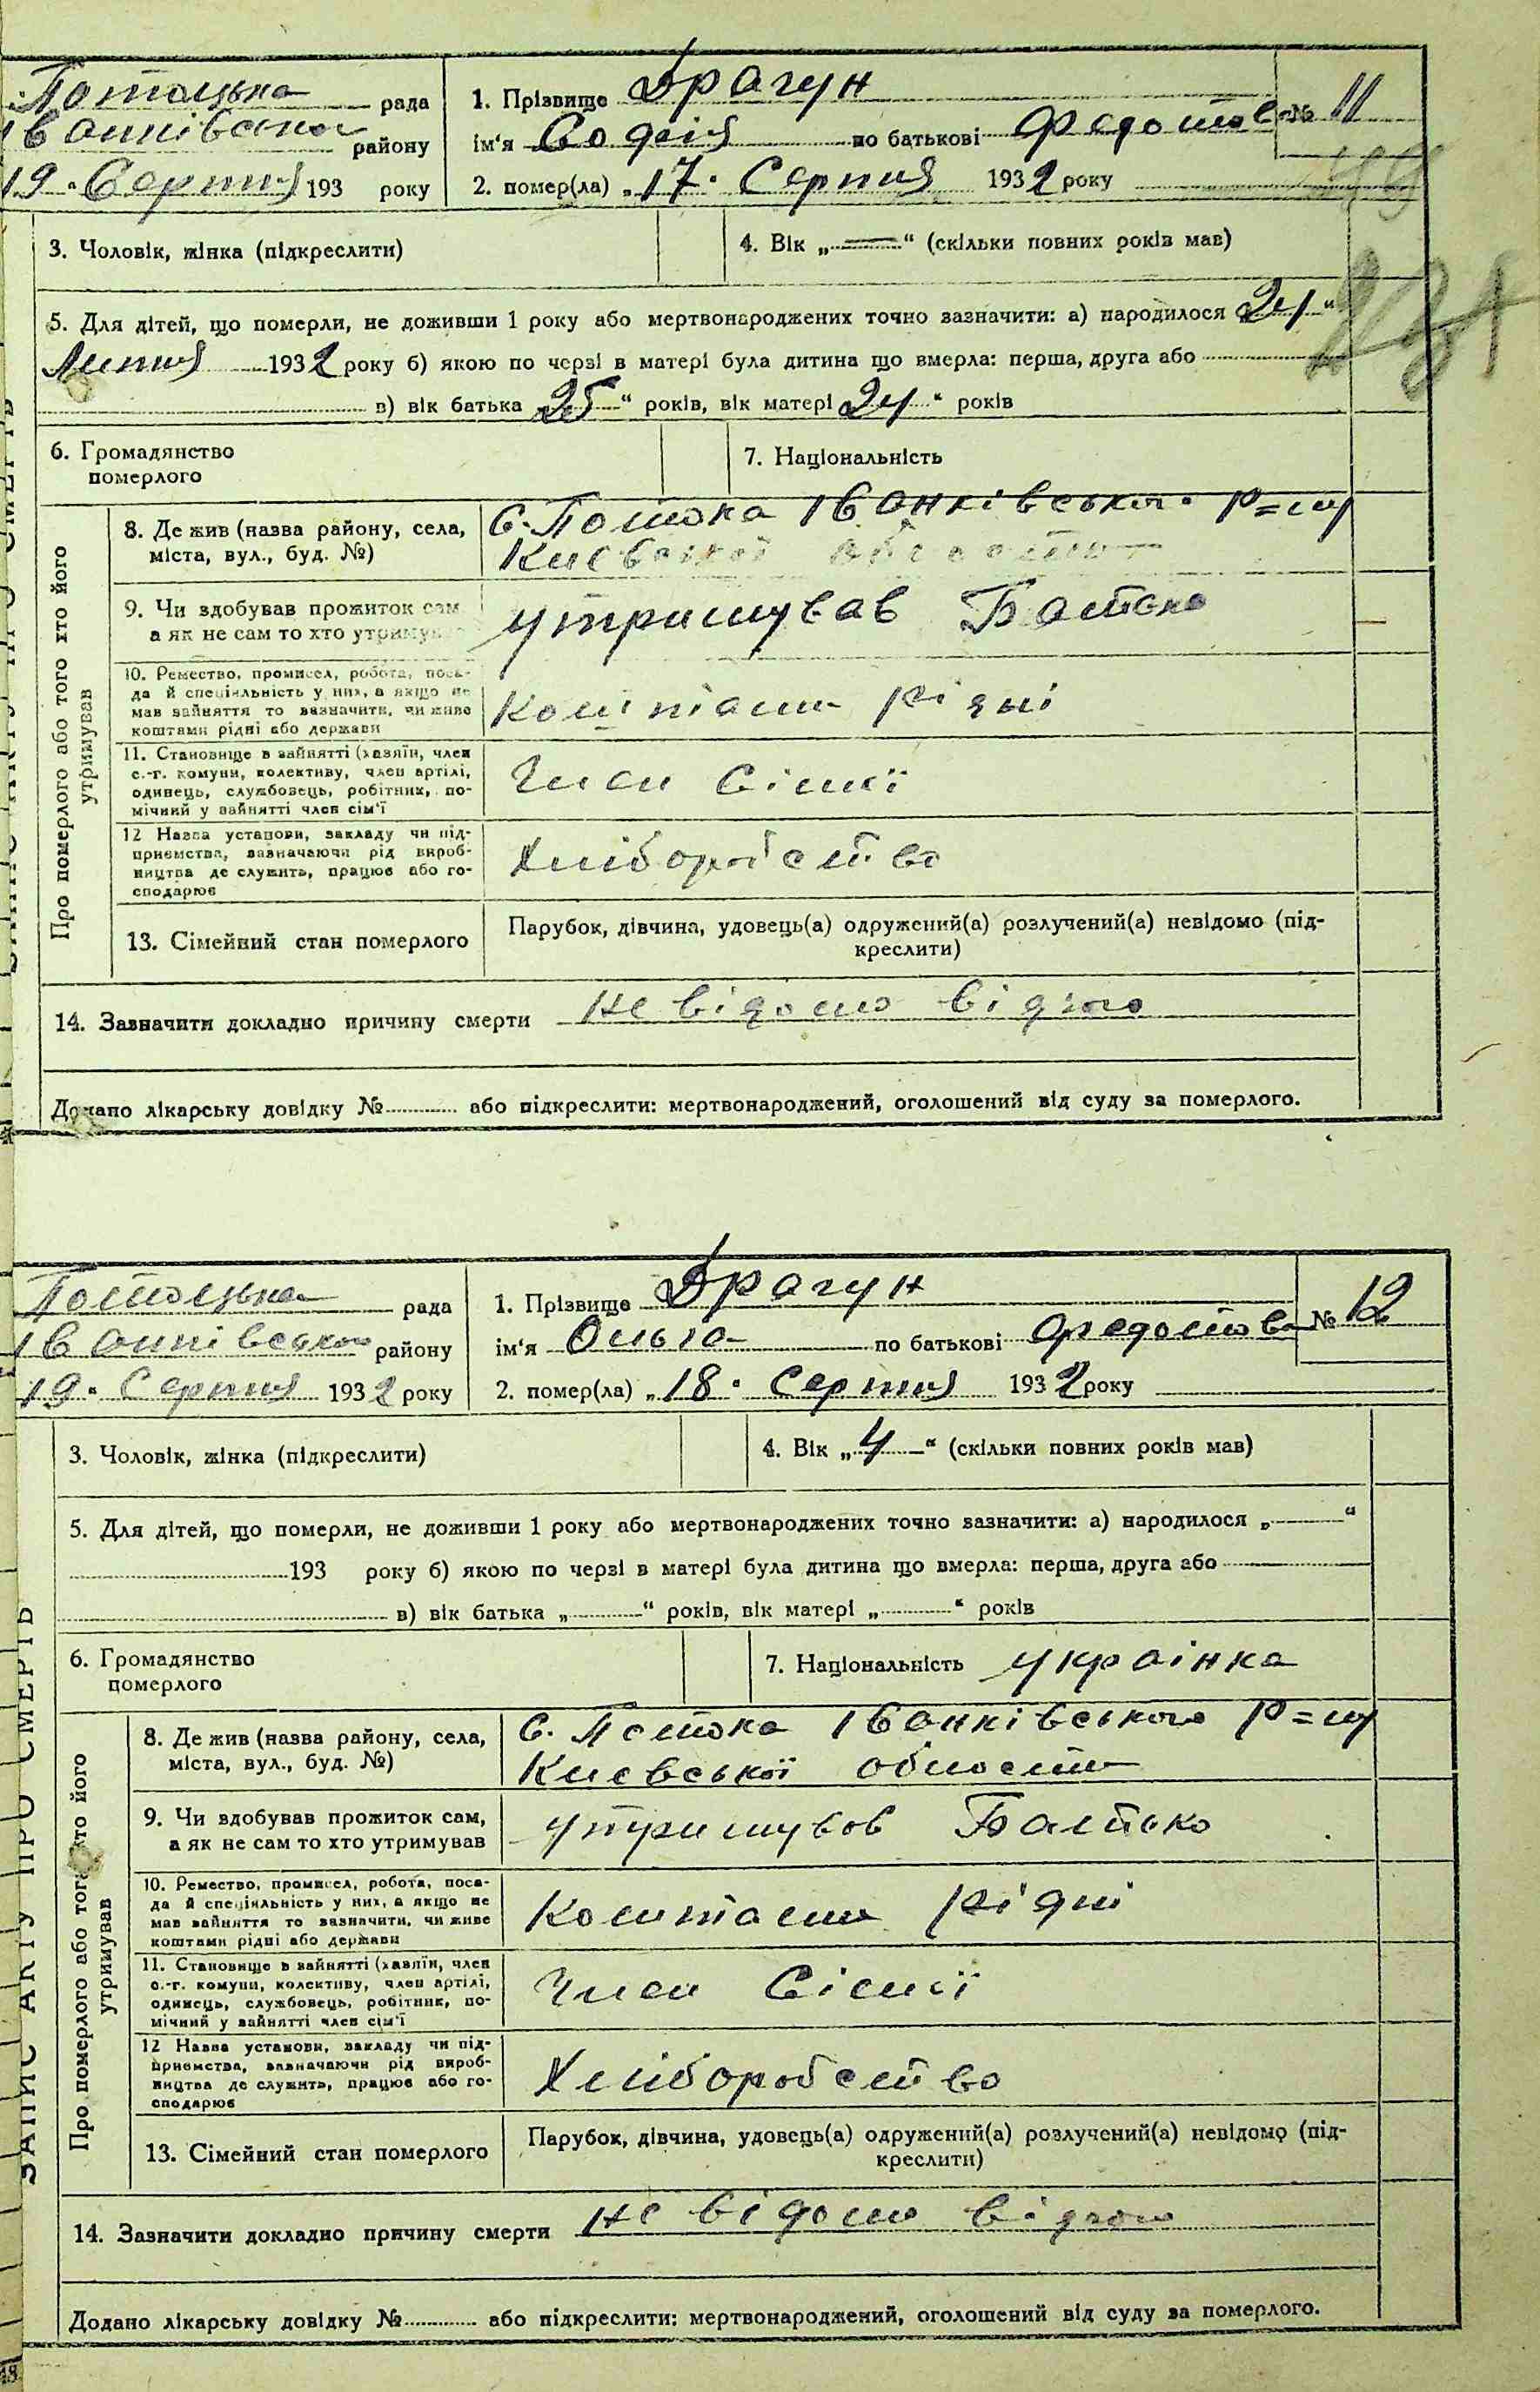 Потоцька рада
Іванківська району
19 Серпня 193 року
1. Прізвище Драгун
ім'я Софія по батькові Федотовна № 11
2. помер(ла) „17" Серпня 1932 року
3. Чоловік, жінка (підкреслити)
4. Вік „—" (скільки повних років мав)
5. Для дітей, що померли, не доживши 1 року або мертвонароджених точно зазначити: а) народилося „24"
Липня 1932 року б) якою по черзі в матері була дитина що вмерла: перша, друга або
в) вік батька „25" років, вік матері „24" років
6. Громадянство
померлого
7. Національність
Про померлого або того хто його
утримував
8. Де жив (назва району, села,
міста, вул., буд. №)
С. Потока Іванківського р=ну
Киевської області
9. Чи здобував прожиток сам
а як не сам то хто утримував
утримував Батько
10. Ремество, промисел, робота, поса-
да й спеціяльність у них, а якщо не
мав зайняття то зазначити, чи живе
коштами рідні або держави
Коштами рідні
11. Становище в зайнятті (хазяїн, член
с.-г. комуни, колективу, член артілі,
одинець, службовець, робітник, по-
мічний у зайнятті член сім'ї
Член Сімії
12 Назва установи, закладу чи під-
приємства, зазначаючи рід вироб-
ництва де служить, працює або го-
сподарює
Хліборобство
13. Сімейний стан померлого
Парубок, дівчина, удовець(а) одружений(а) розлучений(а) невідомо (під-
креслити)
14. Зазначити докладно причину смерти не відомо відчого
Додано лікарську довідку № або підкреслити: мертвонароджений, оголошений від суду за померлого.
Потоцька рада
Іванківська району
19. Серпня 1932 року
1. Прізвище Драгун
ім'я Ольга по батькові Федотовна № 12
2. помер(ла) „18" Серпня 1932 року
3. Чоловік, жінка (підкреслити)
4. Вік „4" (скільки повних років мав)
5. Для дітей, що померли, не доживши 1 року або мертвонароджених точно зазначити: а) народилося „ "
193 року б) якою по черзі в матері була дитина що вмерла: перша, друга або
в) вік батька „ " років, вік матері „ " років
6. Громадянство
померлого
7. Національність українка
ЗАПИС АКТУ ПРО СМЕРТЬ
Про померлого або того хто його
утримував
8. Де жив (назва району, села,
міста, вул., буд. №)
С. Потока Іванківського р=ну
Киевської области
9. Чи здобував прожиток сам,
а як не сам то хто утримував
утримував Батько
10. Ремество, промисел, робота, поса-
да й спеціяльність у них, а якщо не
мав зайняття то зазначити, чи живе
коштами рідні або держави
Коштами рідні
11. Становище в зайнятті (хазяїн, член
с.-г. комуни, колективу, член артілі,
одинець, службовець, робітник, по-
мічний у зайнятті член сім'ї
Член Сімії
12 Назва установи, закладу чи під-
приємства, зазначаючи рід вироб-
ництва де служить, працює або го-
сподарює
Хліборобство
13. Сімейний стан померлого
Парубок, дівчина, удовець(а) одружений(а) розлучений(а) невідомо (під-
креслити)
14. Зазначити докладно причину смерти не відомо відчого
Додано лікарську довідку № або підкреслити: мертвонароджений, оголошений від суду за померлого.